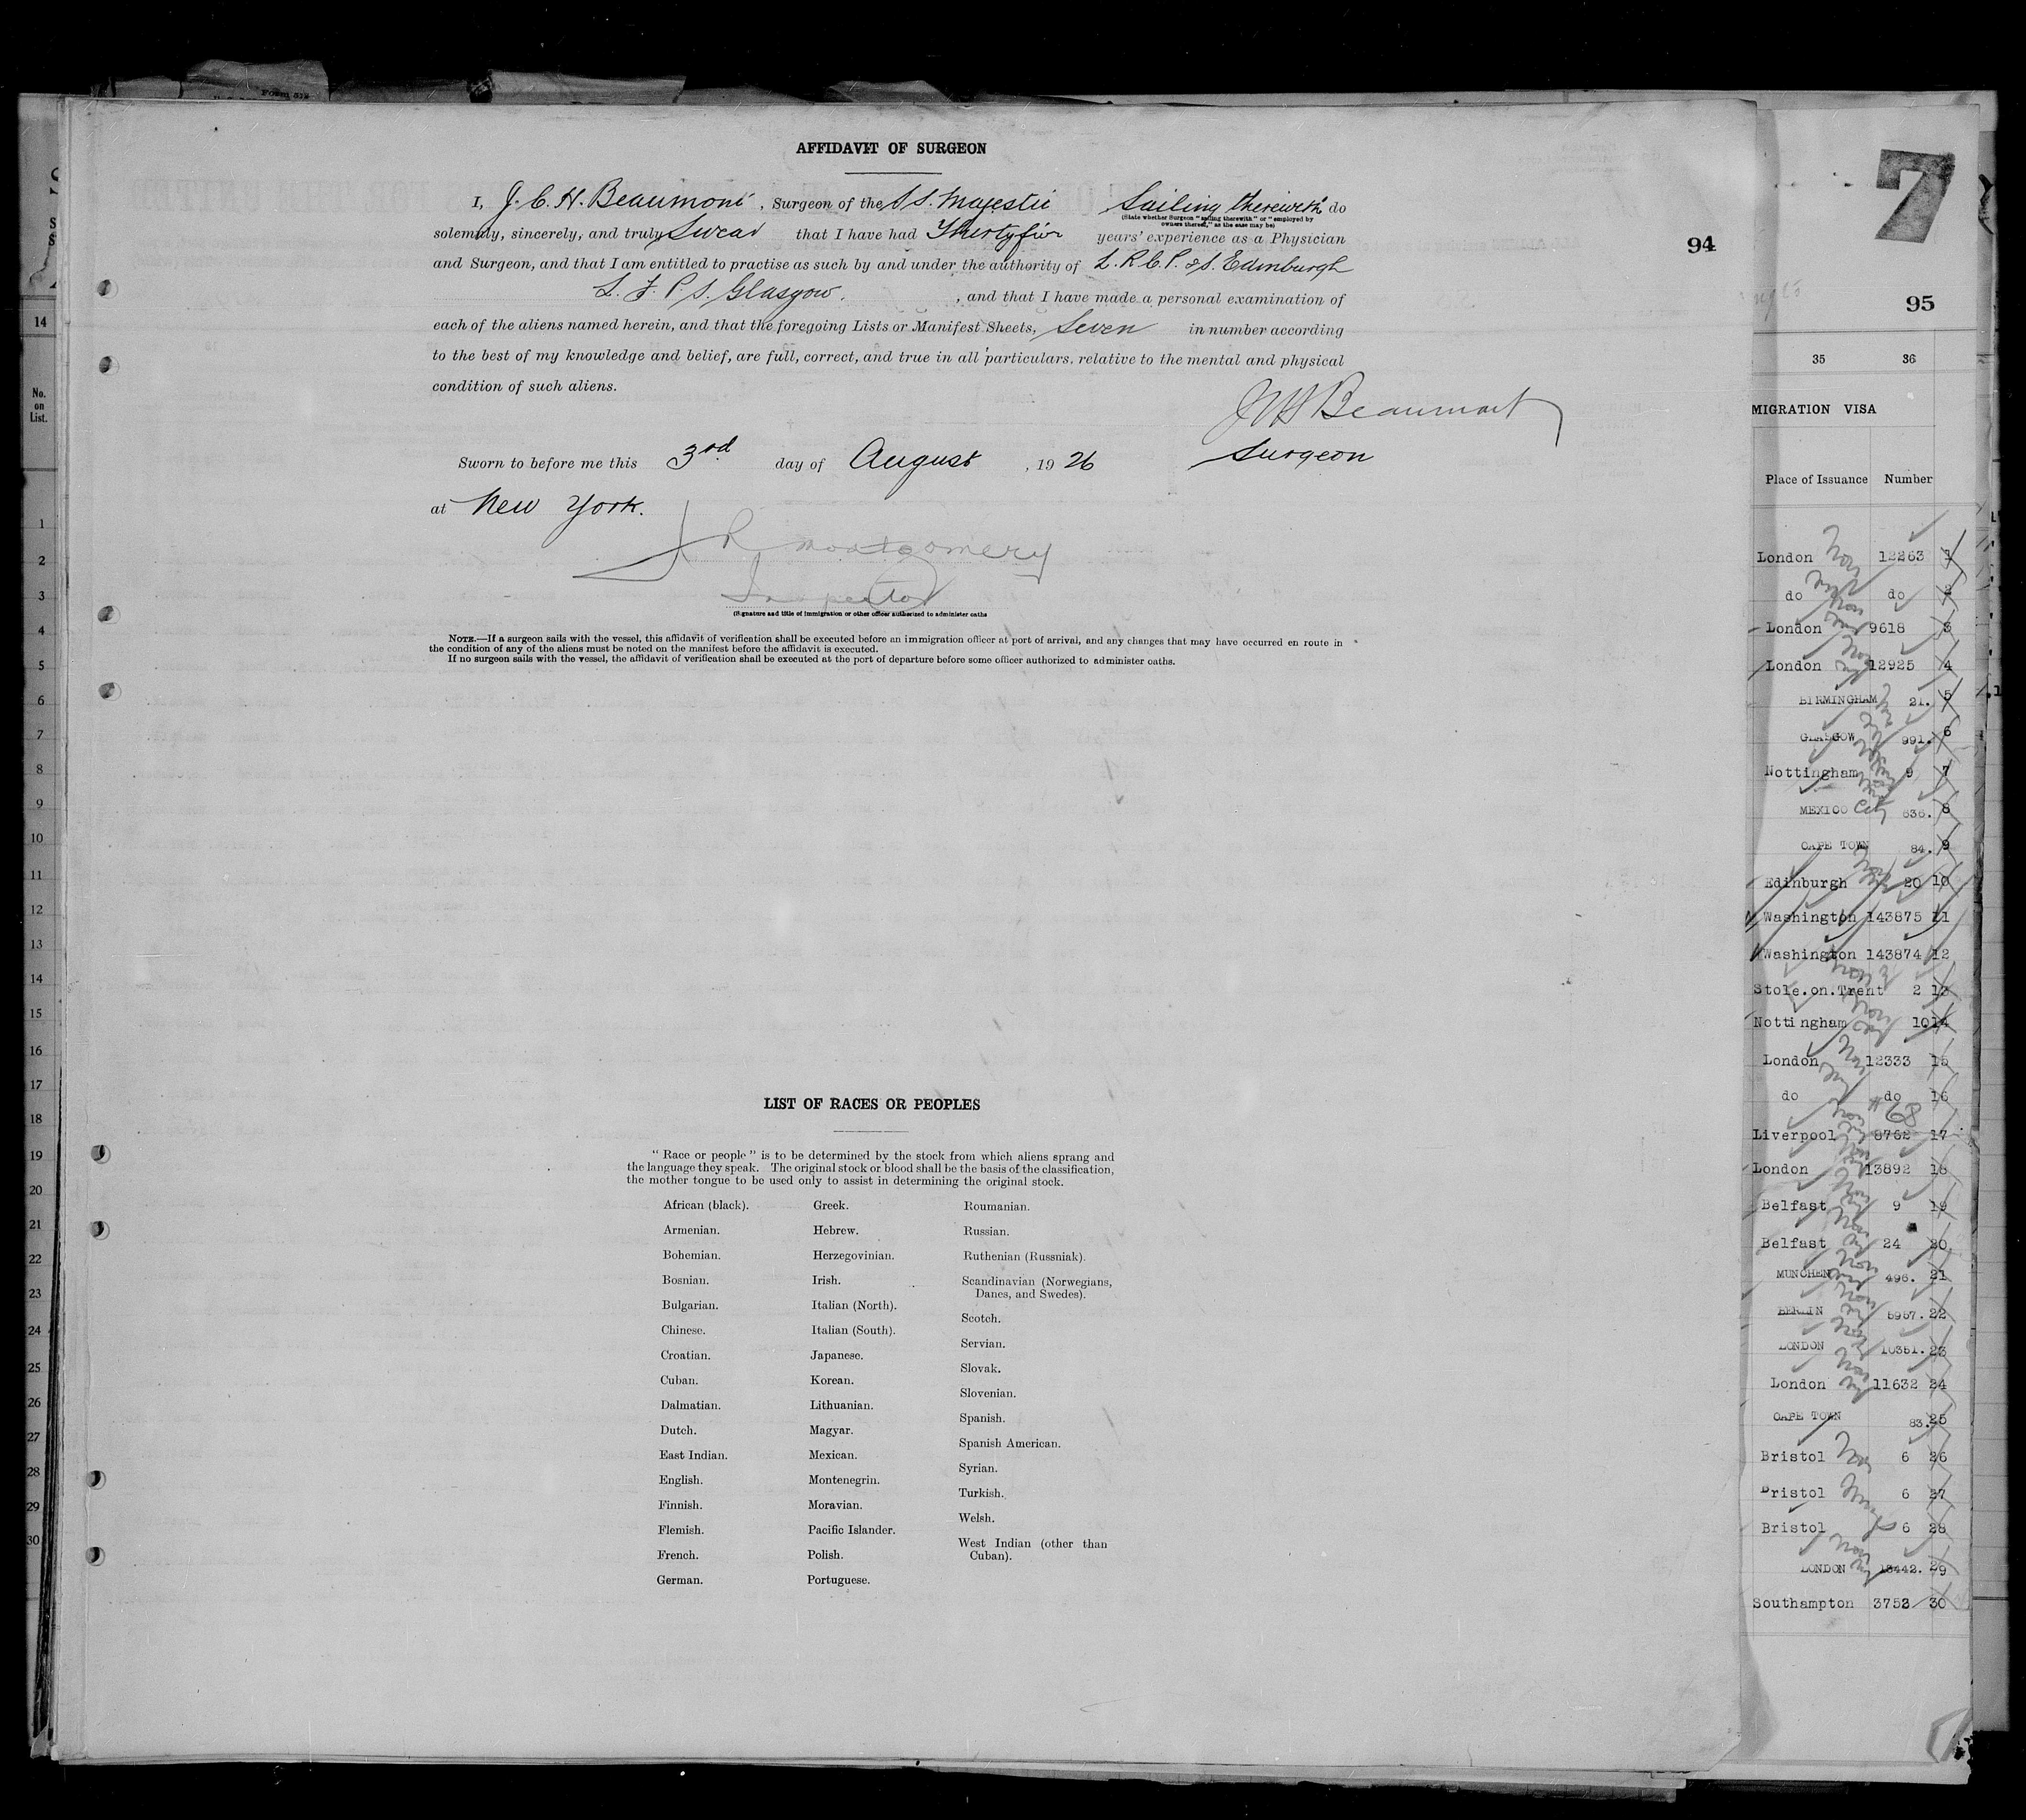 Form 572
AFFIDAVIT OF SURGEON
I, J. C. H. Beaumont, Surgeon of the SS. Majestic Sailing therewith do
(State whether Surgeon "sailing therewith" or "employed by
owners thereof," as the case may be)
solemnly, sincerely, and truly Swear that I have had Thirtyfive years' experience as a Physician
and Surgeon, and that I am entitled to practise as such by and under the authority of L. R. C. P. & S. Edinburgh
L. F. P. S. Glasgow. , and that I have made a personal examination of
each of the aliens named herein, and that the foregoing Lists or Manifest Sheets, Seven in number according
to the best of my knowledge and belief, are full, correct, and true in all particulars, relative to the mental and physical
condition of such aliens.
JCH Beaumont
Surgeon
Sworn to before me this 3rd day of August, 1926
at New York.
J R Montgomery
Inspector
(Signature and title of immigration or other officer authorized to administer oaths
NOTE.—If a surgeon sails with the vessel, this affidavit of verification shall be executed before an immigration officer at port of arrival, and any changes that may have occurred en route in
the condition of any of the aliens must be noted on the manifest before the affidavit is executed.
If no surgeon sails with the vessel, the affidavit of verification shall be executed at the port of departure before some officer authorized to administer oaths.
94
LIST OF RACES OR PEOPLES
" Race or people " is to be determined by the stock from which aliens sprang and
the language they speak. The original stock or blood shall be the basis of the classification,
the mother tongue to be used only to assist in determining the original stock.
African (black).
Armenian.
Bohemian.
Bosnian.
Bulgarian.
Chinese.
Croatian.
Cuban.
Dalmatian.
Dutch.
East Indian.
English.
Finnish.
Flemish.
French.
German.
Greek.
Hebrew.
Herzegovinian.
Irish.
Italian (North).
Italian (South).
Japanese.
Korean.
Lithuanian.
Magyar.
Mexican.
Montenegrin.
Moravian.
Pacific Islander.
Polish.
Portuguese.
Roumanian.
Russian.
Ruthenian (Russniak).
Scandinavian (Norwegians,
Danes, and Swedes).
Scotch.
Servian.
Slovak.
Slovenian.
Spanish.
Spanish American.
Syrian.
Turkish.
Welsh.
West Indian (other than
Cuban).
14
No.
on
List.
1
2
3
4
5
6
7
8
9
10
11
12
13
14
15
16
17
18
19
20
21
22
23
24
25
26
27
28
29
30
7
95
35 36
MIGRATION VISA
Place of Issuance Number
London 12263 1
do do 2
London 9618 3
London 12925 4
BIRMINGHAM 21. 5
GLASGOW 991. 6
Nottingham 9 7
MEXICO City 636. 8
CAPE TOWN 84. 9
Edinburgh 20 10
Washington 143875 11
Washington 143874 12
Stole.on.Trent 2 13
Nottingham 10 14
London 12333 15
do do 16
#68
Liverpool 8762 17
London 13892 18
Belfast 9 19
Belfast 24 20
MUNCHEN 496. 21
BERLIN 5957. 22
LONDON 10351. 23
London 11632 24
CAPE TOWN 83. 25
Bristol 6 26
Bristol 6 27
Bristol 6 28
LONDON 13442. 29
Southampton 3753 30